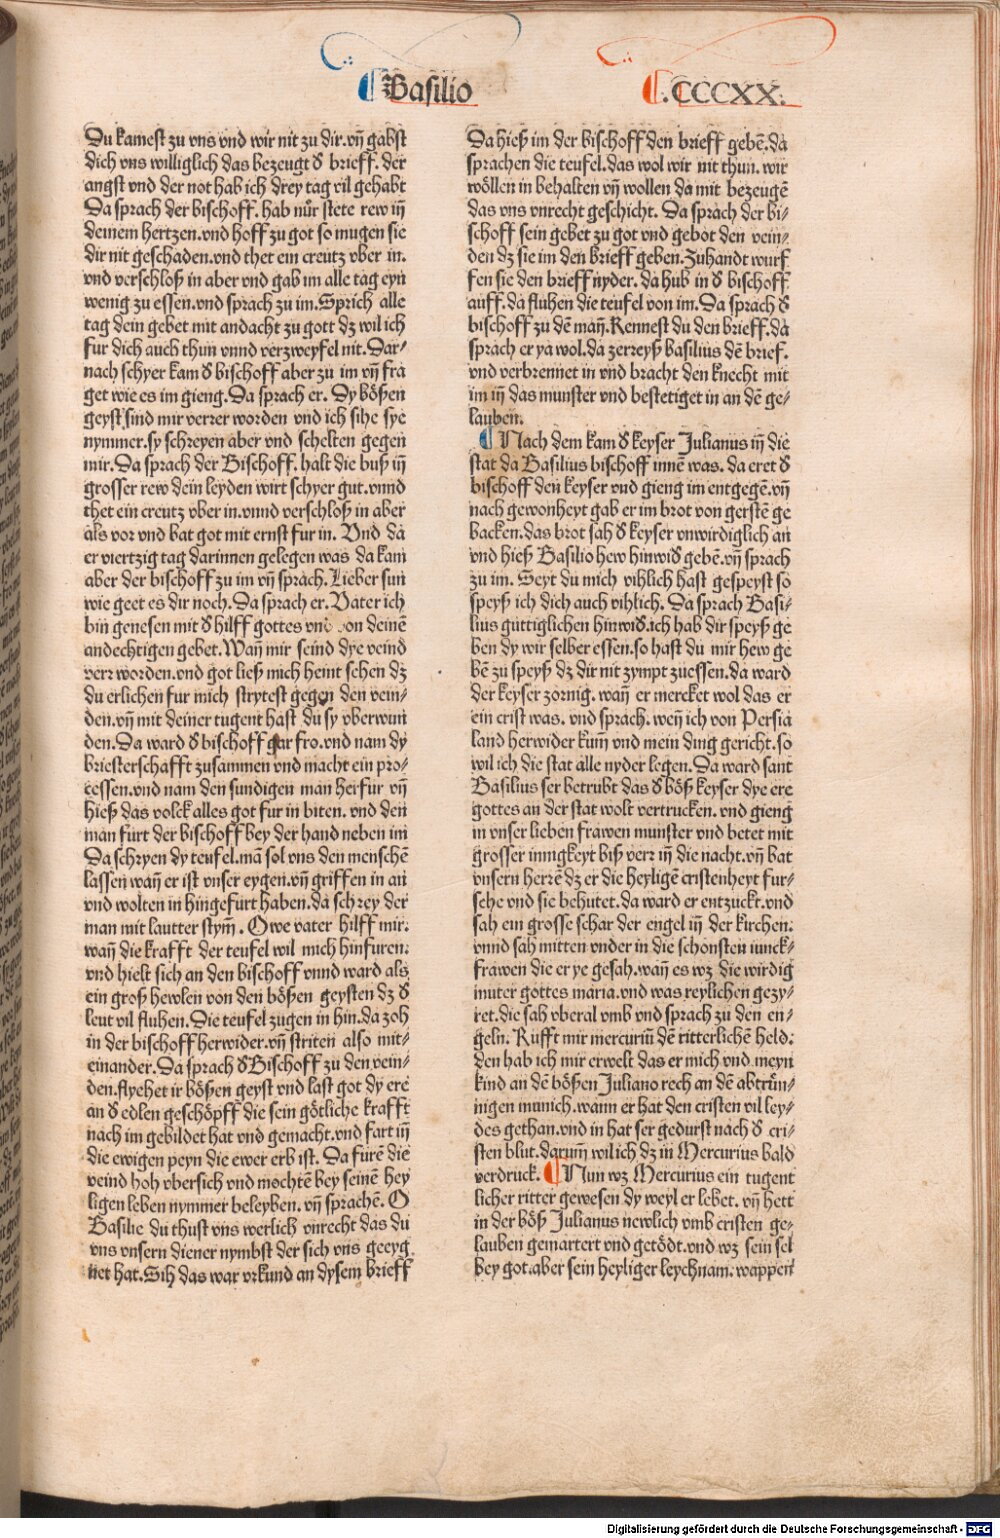 Basilio
.CCCXX.
Du kamest zu vns vnd wir nit zu dir.vñ gabst
dich vns williglich das bezeugt ď brieff. der
angst vnd der not hab ich drey tag vil gehabt
Da sprach der bischoff. hab nůr stete rew iñ
deinem hertzen.vnd hoff zu got so mugen sie
dir nit geschaden.vnd thet ein creutz vber in.
vnd verschloß in aber vnd gab im alle tag eyn
wenig zu essen.vnd sprach zu im.Sprich alle
tag dein gebet mit andacht zu gott dz wil ich
fur dich auch thun vnnd verzweyfel nit. Dar⸗
nach schyer kam ď bischoff aber zu im vñ fra
get wie es im gieng.Da sprach er. Dy bößen
geyst sind mir verrer worden vnd ich sihe sye
nymmer.sy schreyen aber vnd schelten gegen
mir.Da sprach der Bischoff. halt die buß iñ
grosser rew dein leyden wirt schyer gut.vnnd
thet ein creutz vber in.vnnd verschloß in aber
als vor vnd bat got mit ernst fur in. Vnd da
er viertzig tag darinnen gelegen was da kam
aber der bischoff zu im vñ sprach.Lieber sun
wie geet es dir noch.Da sprach er.Vater ich
bin genesen mit ď hilff gottes vnd von deinē
andechtigen gebet.Wañ mir seind dye veind
verr worden.vnd got ließ mich heint sehen dz
du erlichen fur mich strytest gegen den vein⸗
den.vñ mit deiner tugent hast du sy vberwun
den.Da ward ď bischoff gar fro.vnd nam dy
briesterschafft zusammen vnd macht ein pro⸗
cessen.vnd nam den sundigen man herfur vñ
hieß das volck alles got fur in biten. vnd den
man furt der bischoff bey der hand neben im
Da schryen dy teufel.mā sol vns den menschē
lassen wañ er ist vnser eygen.vñ griffen in an
vnd wolten in hingefurt haben.da schrey der
man mit lautter stym̄. Owe vater hilff mir.
wañ die krafft der teufel wil mich hinfuren.
vnd hielt sich an den bischoff vnnd ward als
ein groß hewlen von den bößen geysten dz ď
leut vil fluhen.Die teufel zugen in hin.da zoh
in der bischoff herwider.vñ striten also mit⸗
einander.Da sprach ď Bischoff zu den vein⸗
den.flyehet ir bößen geyst vnd last got dy ere
an ď edlen geschöpff die sein götliche krafft
nach im gebildet hat vnd gemacht.vnd fart iñ
die ewigen peyn die ewer erb ist. Da furē die
veind hoh vbersich vnd mochtē bey seinē hey
ligen leben nymmer beleyben. vñ sprachē. O
Basilie du thust vns werlich vnrecht das du
vns vnsern diener nymbst der sich vns geeyg
net hat.Sih das war vrkund an dysem brieff
Da hieß im der bischoff den brieff gebē.da
sprachen die teufel.das wol wir nit thun. wir
wöllen in behalten vñ wollen da mit bezeugē
das vns vnrecht geschicht. Da sprach der bi⸗
schoff sein gebet zu got vnd gebot den vein⸗
den dz sie im den brieff geben.Zuhandt wurf
fen sie den brieff nyder. da hub in ď bischoff
auff.da fluhen die teufel von im.Da sprach ď
bischoff zu dē mañ.Kennest du den brieff.da
sprach er ya wol.da zerreyß basilius dē brief.
vnd verbrennet in vnd bracht den knecht mit
im iñ das munster vnd bestetiget in an dē ge⸗
lauben.
Nach dem kam ď keyser Julianus iñ die
stat da Basilius bischoff innē was. da eret ď
bischoff den keyser vnd gieng im entgegē.vñ
nach gewonheyt gab er im brot von gerstē ge
backen.das brot sah ď keyser vnwirdiglich an
vnd hieß Basilio hew hinwiď gebē.vñ sprach
zu im. Seyt du mich vihlich hast gespeyst so
speyß ich dich auch vihlich. Da sprach Basi⸗
lius guttiglichen hinwiď.ich hab dir speyß ge
ben dy wir selber essen.so hast du mir hew ge
bē zu speyß dz dir nit zympt zuessen.da ward
der keyser zornig. wañ er mercket wol das er
ein crist was. vnd sprach. weñ ich von Persia
land herwider kum̄ vnd mein ding gericht.so
wil ich die stat alle nyder legen.Da ward sant
Basilius ser betrubt das ď böß keyser dye ere
gottes an der stat wolt vertrucken. vnd gieng
in vnser lieben frawen munster vnd betet mit
grosser innigkeyt biß verr iñ die nacht.vñ bat
vnsern herrē dz er die heyligē cristenheyt fur⸗
sehe vnd sie behutet.da ward er entzuckt.vnd
sah ein grosse schar der engel iñ der kirchen.
vnnd sah mitten vnder in die schonsten iunck⸗
frawen die er ye gesah.wañ es wz die wirdig
muter gottes maria.vnd was reylichen gezy⸗
ret.die sah vberal vmb vnd sprach zu den en⸗
geln. Rufft mir mercuriū dē ritterlichē held.
den hab ich mir erwelt das er mich vnd meyn
kind an dē bößen Juliano rech an dē abtrün⸗
nigen munich.wann er hat den cristen vil ley⸗
des gethan.vnd in hat ser gedurst nach ď cri⸗
sten blut.darum̄ wil ich dz in Mercurius bald
verdruck. Nun wz Mercurius ein tugent
licher ritter gewesen dy weyl er lebet. vñ hett
in der böß Julianus newlich vmb cristen ge⸗
lauben gemartert vnd getödt.vnd wz sein sel
bey got.aber sein heyliger leychnam. wappen
Digitalisierung gefördert durch die Deutsche Forschungsgemeinschaft - DFG